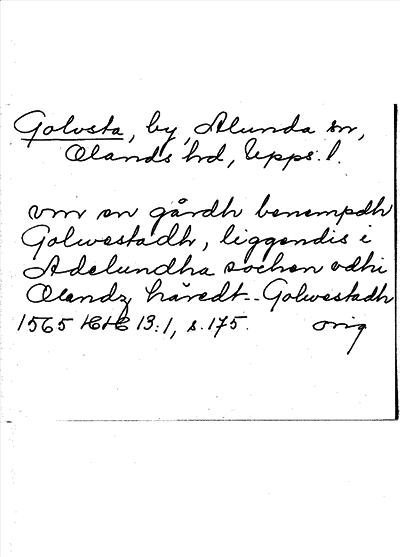 Golvsta, by, Alunda sn,
Olands hd, Upps. l.
vm en gårdh benempdh
Golwestadh, liggendis i
Adelundha sochen vdhi
Olandz häredt -- Golwestadh
1565 HH 13:1, s. 175. orig